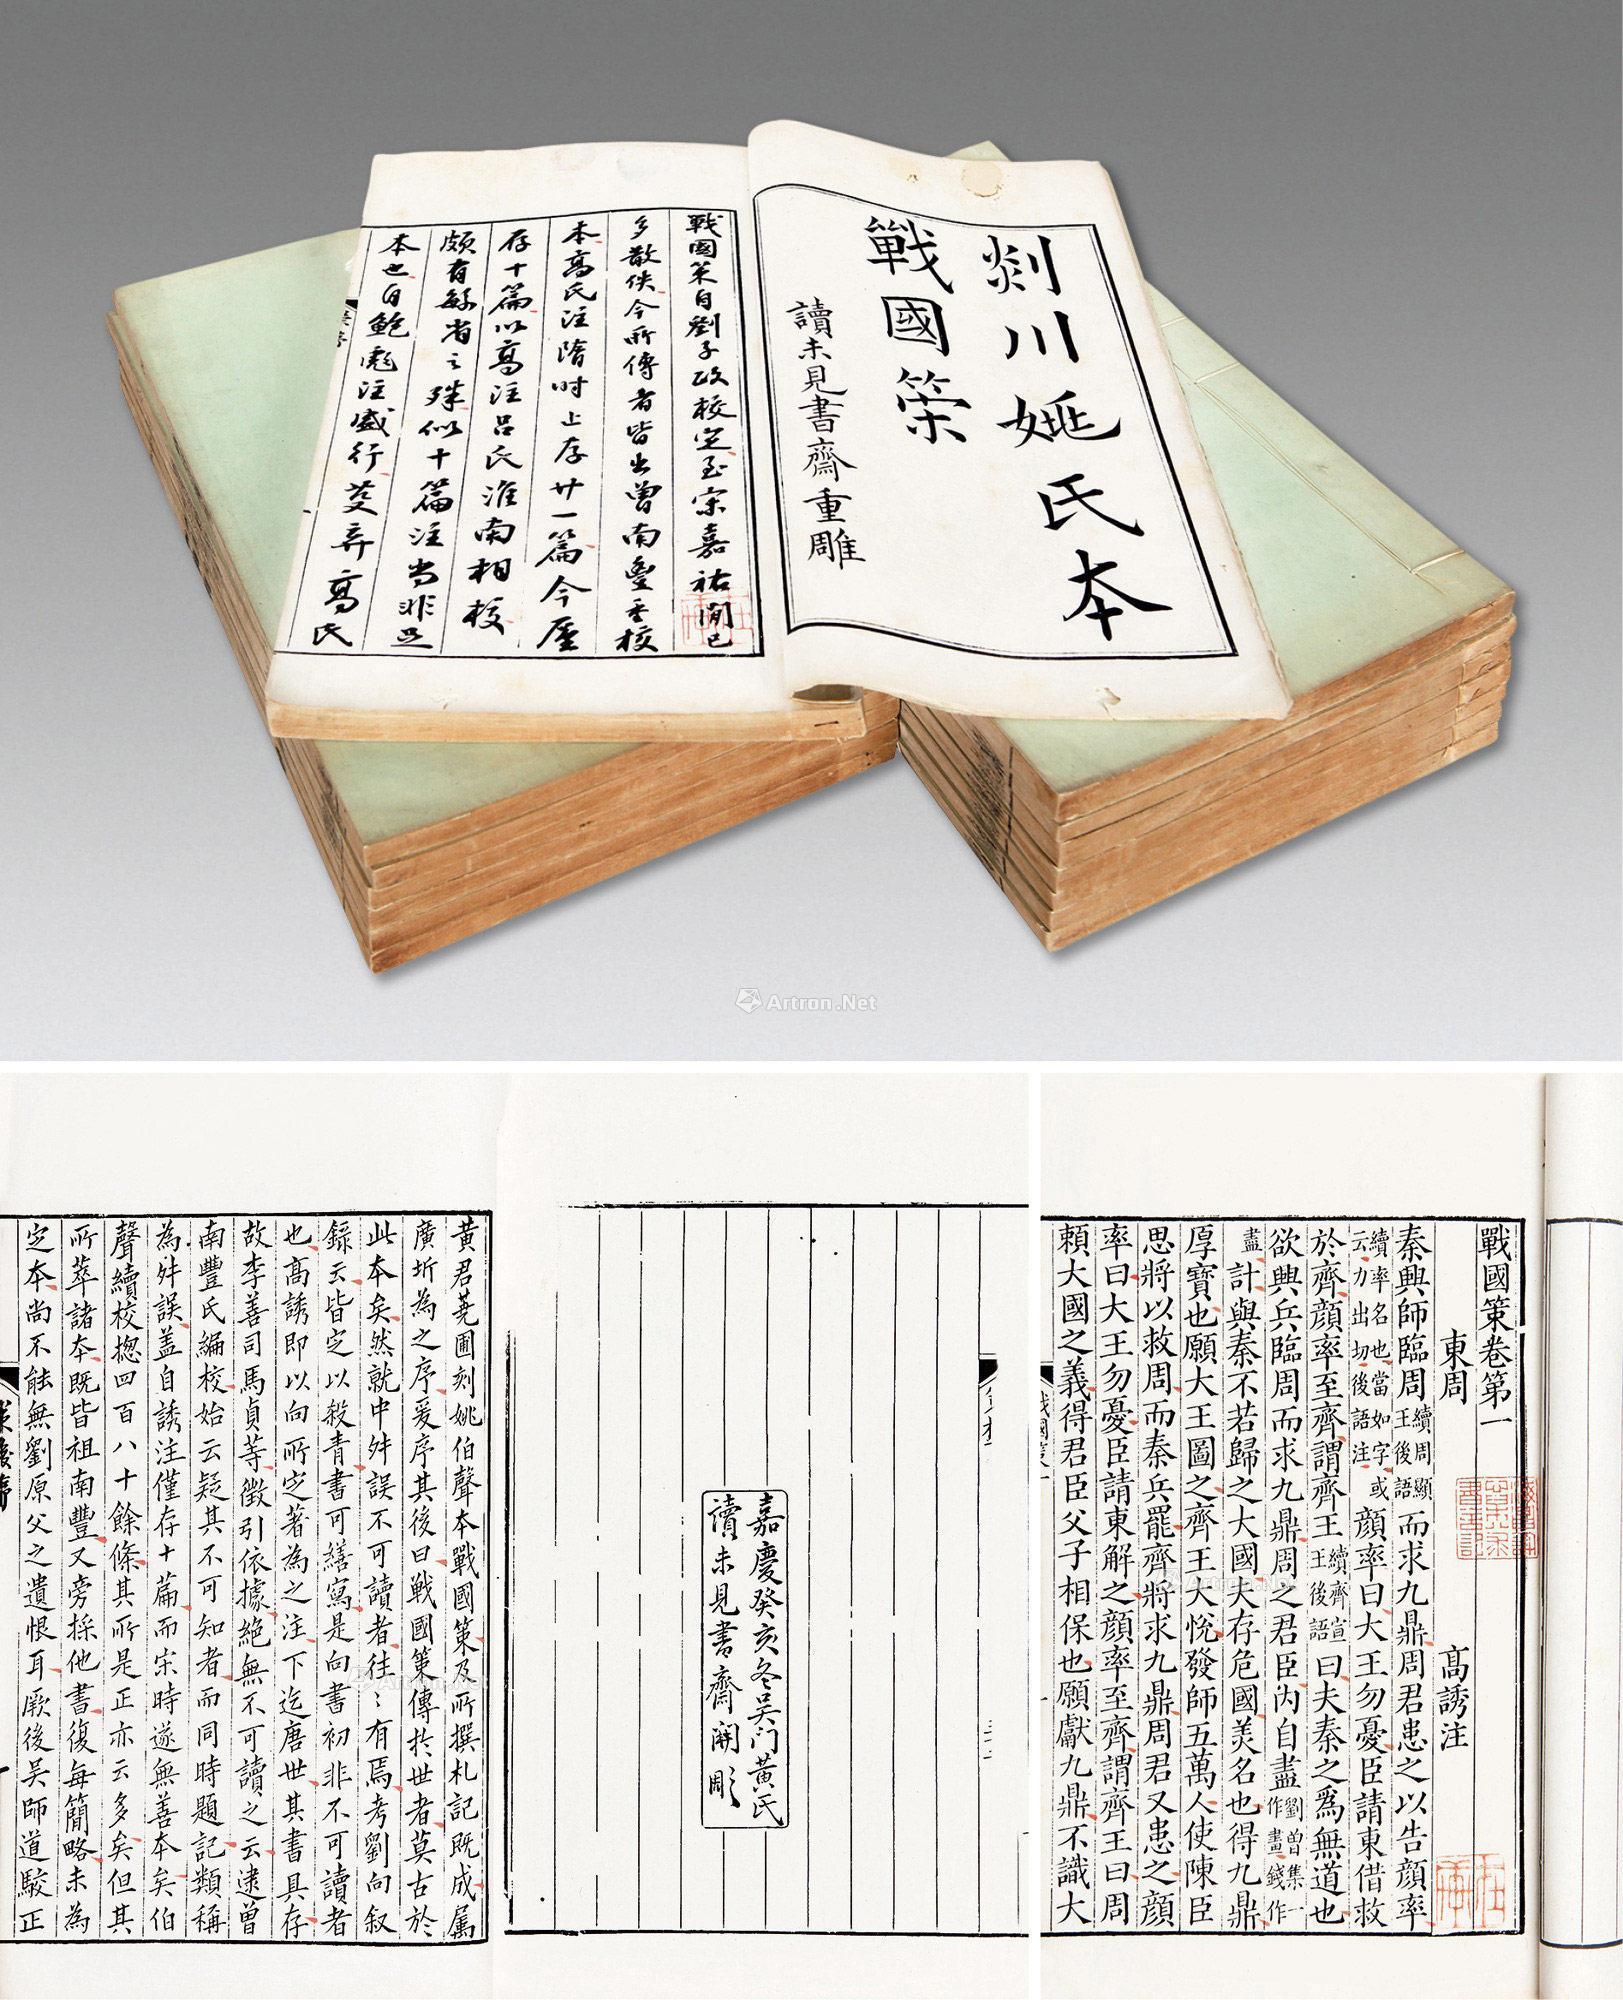 剡川姚氏本
戰國策
讀未見書齋重雕
戰國策自劉子政校定至宋嘉祐閒已
多散佚今所傳者皆出曾南豐重校
本高氏注隋時止存廿一篇今廑
存十篇以高注呂氏淮南相校
頗有緐省之殊似十篇注尚非足
本也自鮑彪注盛行芟弃高氏
Artron.Net
戰國策卷第一
東周
高誘注
秦興師臨周續周顯王後語而求九鼎周君患之以告顏率
續率名也當如字或云力出切後語注顏率曰大王勿憂臣請東借救
於齊顏率至齊謂齊王續齊宣王後語曰夫秦之爲無道也
欲興兵臨周而求九鼎周之君臣內自盡劉曾集一作畫錢作
盡計與秦不若歸之大國夫存危國美名也得九鼎
厚寶也願大王圖之齊王大悅發師五萬人使陳臣
思將以救周而秦兵罷齊將求九鼎周君又患之顏
率曰大王勿憂臣請東解之顏率至齊謂齊王曰周
賴大國之義得君臣父子相保也願獻九鼎不識大
嘉慶癸亥冬吳門黃氏
讀未見書齋開彫
黃君蕘圃刻姚伯聲本戰國策及所撰札記既成屬
廣圻為之序爰序其後曰戰國策傳於世者莫古於
此本矣然就中舛誤不可讀者往〻有焉考劉向叙
錄云皆定以殺青書可繕寫是向書初非不可讀者
也高誘即以向所定著為之注下迄唐世其書具存
故李善司馬貞等徵引依據絕無不可讀之云逮曾
南豐氏編校始云疑其不可知者而同時題記類稱
為舛誤蓋自誘注僅存十篇而宋時遂無善本矣伯
聲續校揔四百八十餘條其所是正亦云多矣但其
所萃諸本既皆祖南豐又旁採他書復每簡略未為
定本尚不能無劉原父之遺恨耳厥後吳師道駮正